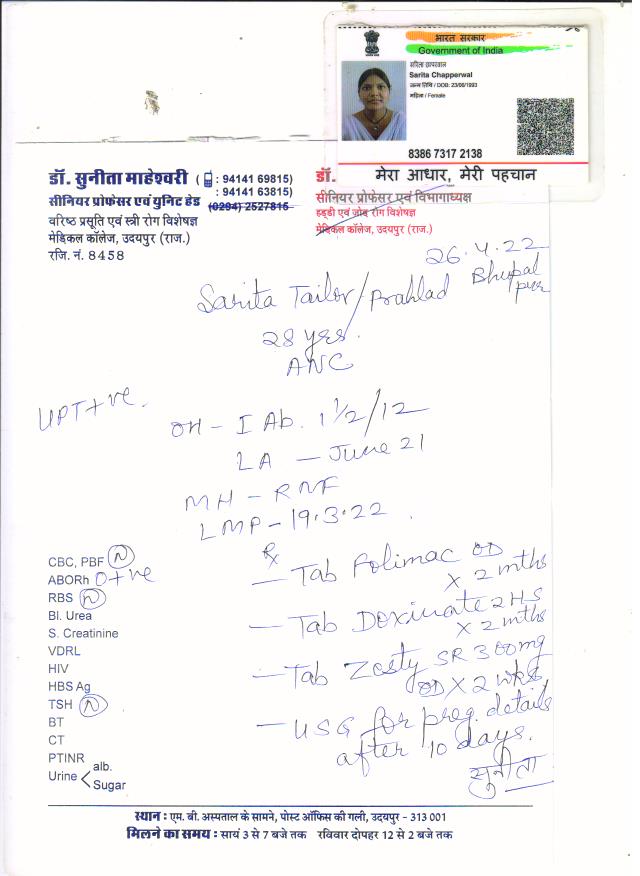 भारत सरकार
Government of India
सरिता छापरवाल
Sarita Chapperwal
जन्म तिथि / DOB: 23/06/1993
महिला / Female
8386 7317 2138
मेरा आधार, मेरी पहचान
डॉ. सुनीता माहेश्वरी ( : 94141 69815)
: 94141 63815)
सीनियर प्रोफेसर एवं युनिट हेड (0294) 2527815
वरिष्ठ प्रसूति एवं स्त्री रोग विशेषज्ञ
मेडिकल कॉलेज, उदयपुर (राज.)
रजि. नं. 8458
डॉ.
सीनियर प्रोफेसर एवं विभागाध्यक्ष
हड्डी एवं जोड़ रोग विशेषज्ञ
मेडिकल कॉलेज, उदयपुर (राज.)
26.4.22
Sarita Tailor/Prahlad Bhupal
pur
28 yrs.
ANC
UPT+ve.
OH - I Ab. 1 1/2/12
LA - June 21
MH - RNF
LMP - 19.3.22.
Rx
- Tab Folimac OD
x 2 mths
- Tab Doxinate 2 HS
x 2 mths
- Tab Zosty SR 300mg
OD x 2 wks
- USG for preg. details
after 10 days.
सुनीता
CBC, PBF N
ABORh O+ve
RBS N
Bl. Urea
S. Creatinine
VDRL
HIV
HBS Ag
TSH N
BT
CT
PTINR
Urine < alb.
Sugar
स्थान : एम. बी. अस्पताल के सामने, पोस्ट ऑफिस की गली, उदयपुर - 313 001
मिलने का समय : सायं 3 से 7 बजे तक रविवार दोपहर 12 से 2 बजे तक